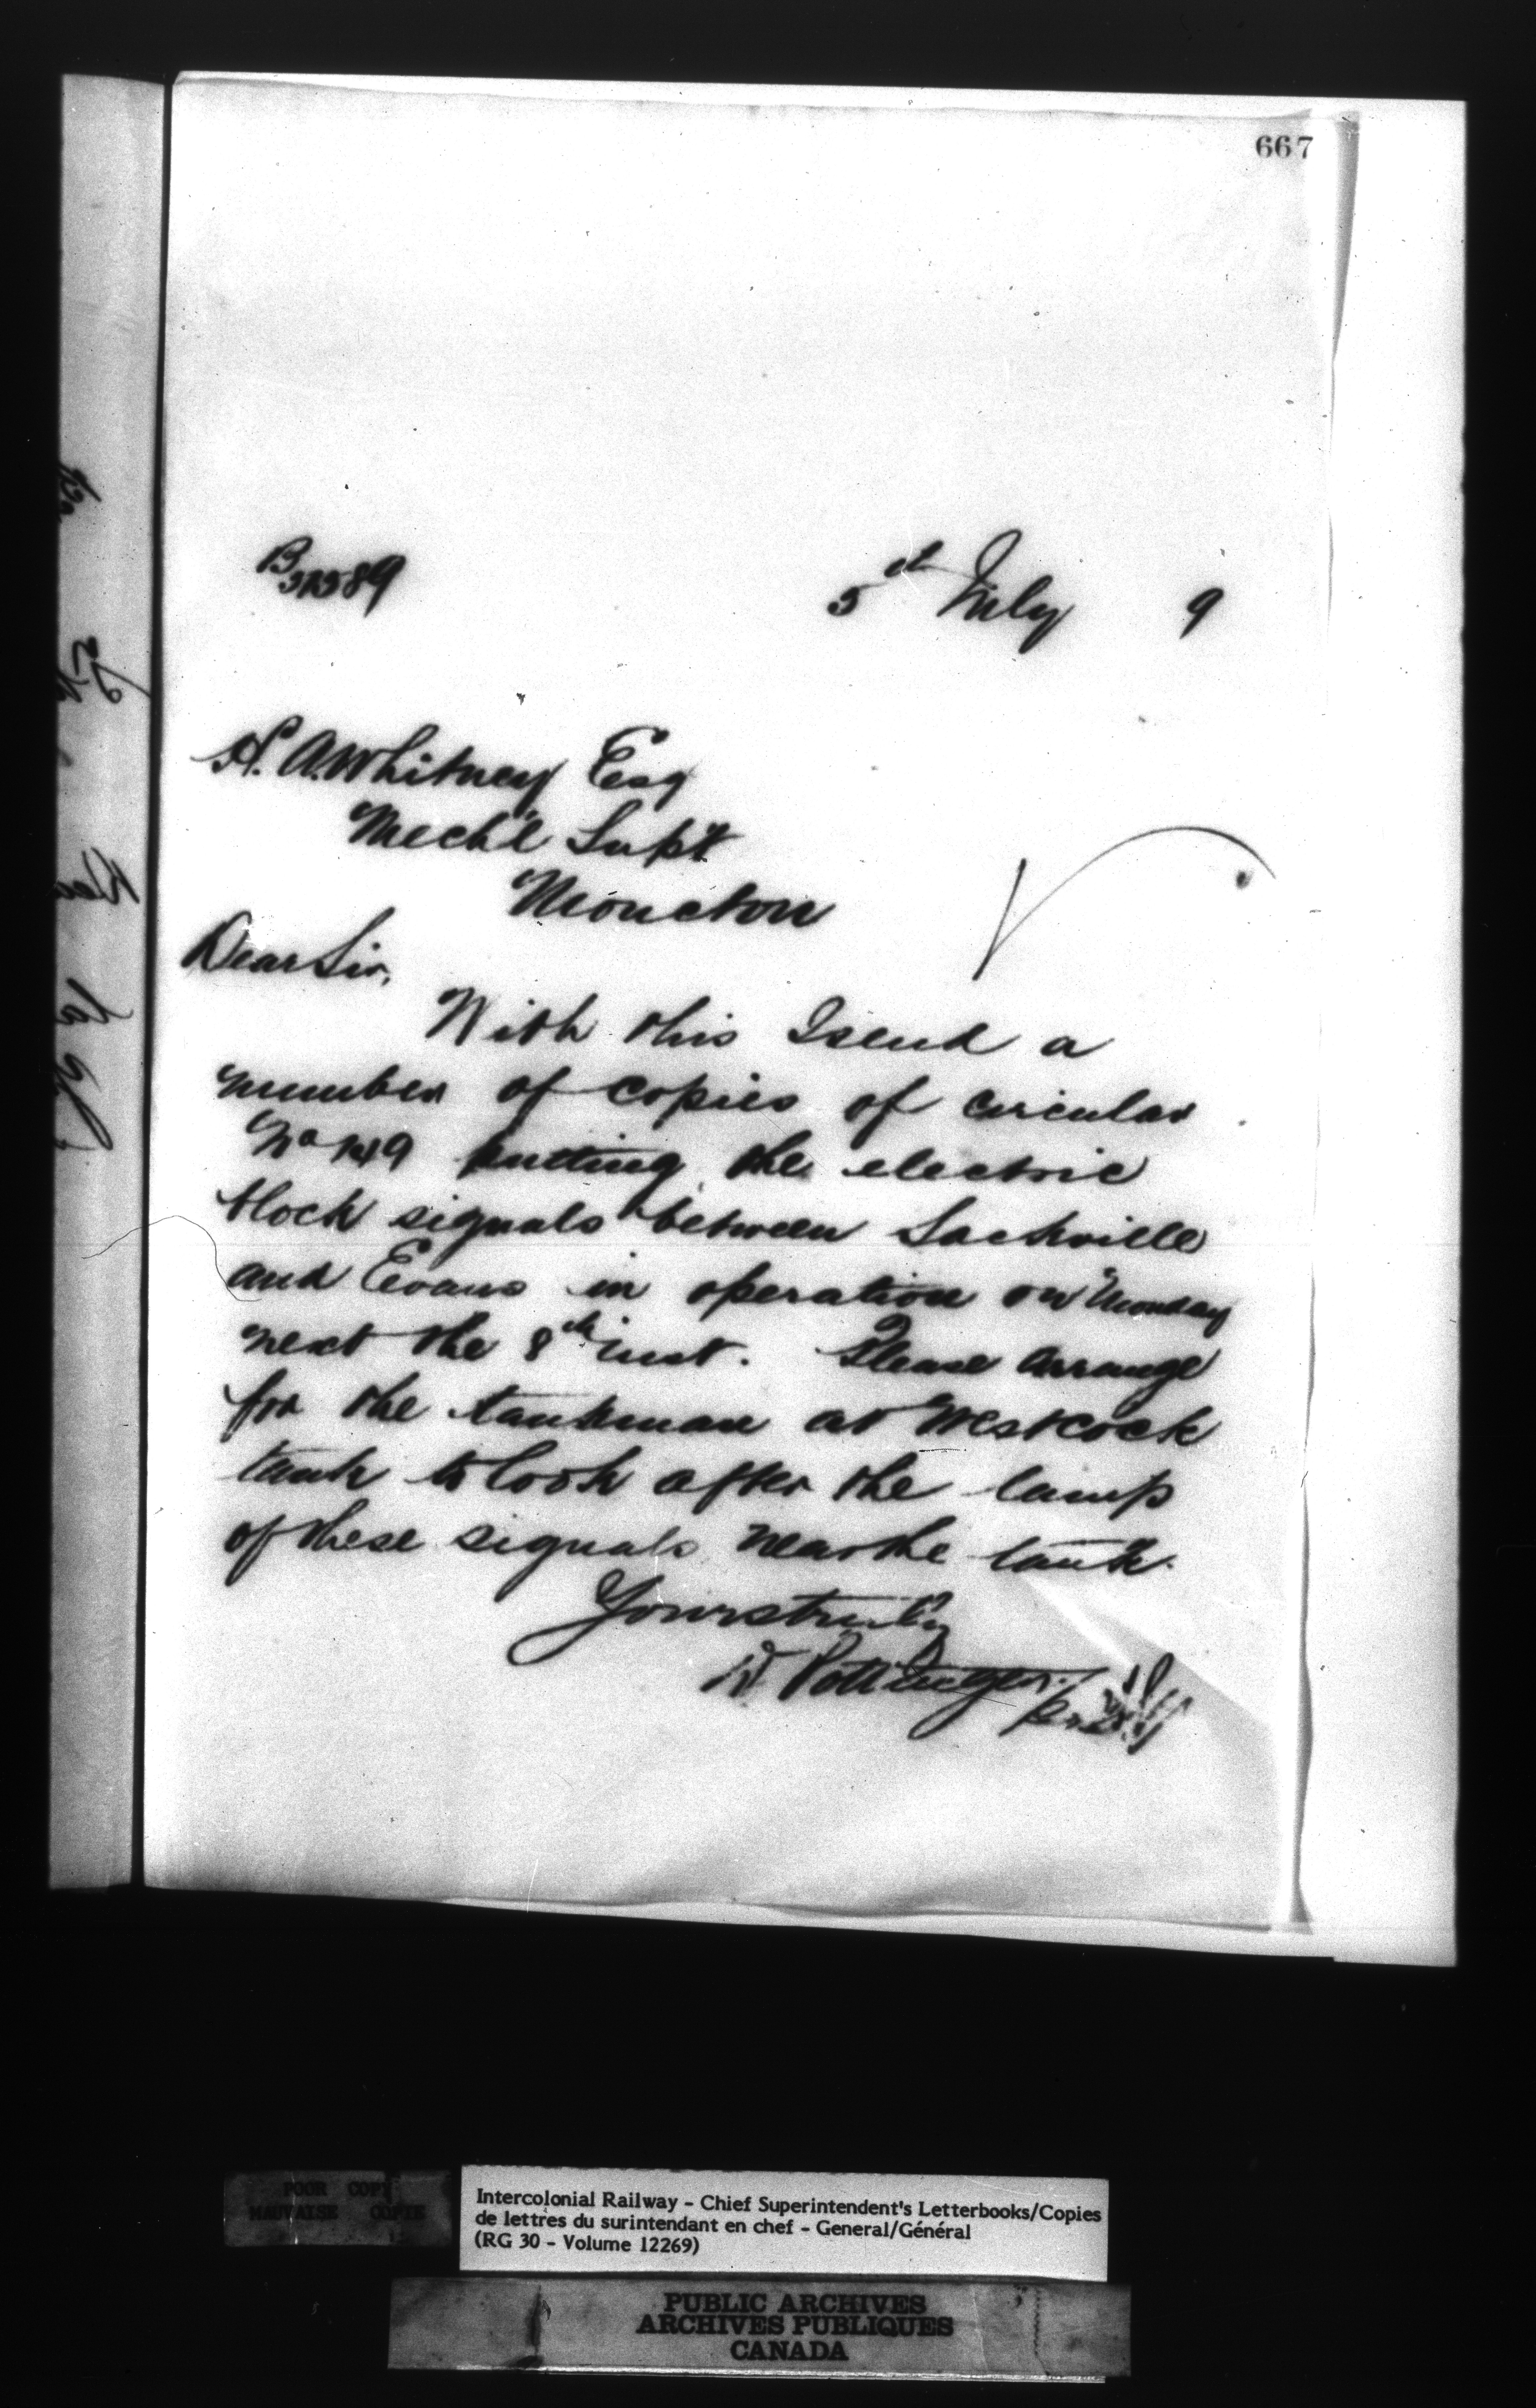 667
B 31589
5th July 9
H. A. Whitney Esq
Mech'l Supt
Moncton
Dear Sir,
With this I send a
number of copies of circular
No putting the electric
block signals between Sackville
and Evans in operation on Monday
next the 8th inst. Please arrange
for the tankman at Westcock
tank to look after the lamp
of these signals near the tank.
Yours truly
D Pottinger
POOR COPY
MAUVAISE COPIE
Intercolonial Railway - Chief Superintendent's Letterbooks/Copies
de lettres du surintendant en chef - General/Général
(RG 30 - Volume 12269)
PUBLIC ARCHIVES
ARCHIVES PUBLIQUES
CANADA